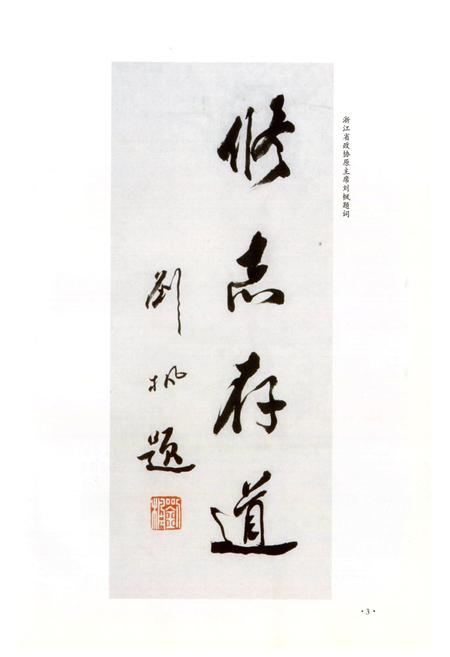 浙江省政协原主席刘枫题词
修志存道
刘枫题
刘枫
·3·